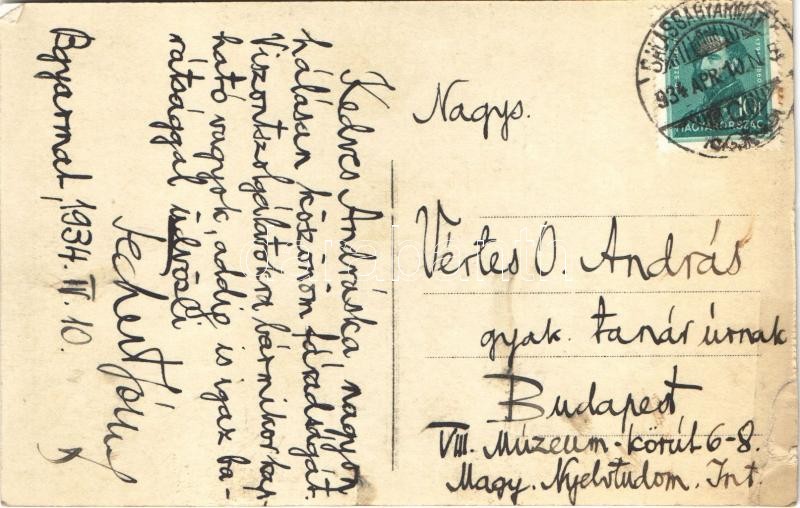 Kedves Andráska, nagyon
hálásan köszönöm fáradságát.
Viszontszolgálatokra bármikor kap-
ható vagyok, addig is igaz ba-
rátsággal üdvözli
Bgyarmat, 1934. IV. 10.
Nagys.
Vértes O. András
gyak. tanár úrnak
Budapest
VIII. Múzeum-körút 6-8.
Magy. Nyelvtudom. Int.
BALASSAGYARMAT
934 APR. 10
10f
MAGYARORSZÁG